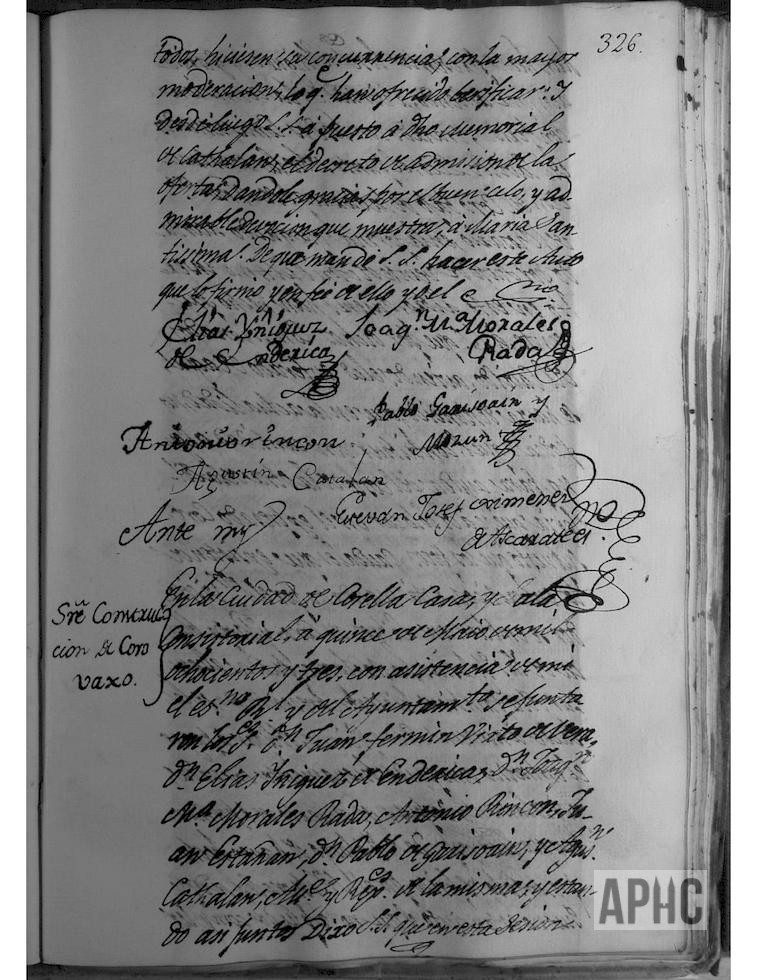 326.
todos, hiciesen su concurrencia, con la mayor
moderacion, lo q.e han ofrecido berificar: Y
desde luego S.S. á puesto á dho Memorial
de Cathalan, el decreto de admision de la
oferta, dandole gracias por el buen celo, y ad
mirable devocion que muestra, á Maria San
tissima. De que mandó S.S. hacer este Auto
que lo firmó y en fee de ello yo el Ess.no
Elias Yñiguez Joaq.n M.a Morales
de Enderica Rada
Pablo Garisoain y
Antonio rincon Mozun
Agustin Catalan
Ante my Estevan Josef Ximenez
de Ascarate es.no
Sre Construc
cion de Coro
vaxo.
En la Ciudad de Corella Casa, y Sala
Consistorial, á quince de Maio de mil
ochocientos y tres, con asistencia de mi
el es.no R.l y del Ayuntam.to se junta
ron los S.res D.n Juan fermin Virto de Vera,
D.n Elias Yñiguez de Enderica, D.n Joaq.n
M.a Morales Rada, Antonio Rincon, Ju-
an Estañan, D.n Pablo de Garisoain, y Agus.n
Cathalan, Alc.e y Reg.s de la misma, y estan-
do asi juntos Dixo S.S. que en esta Sesion
APHC